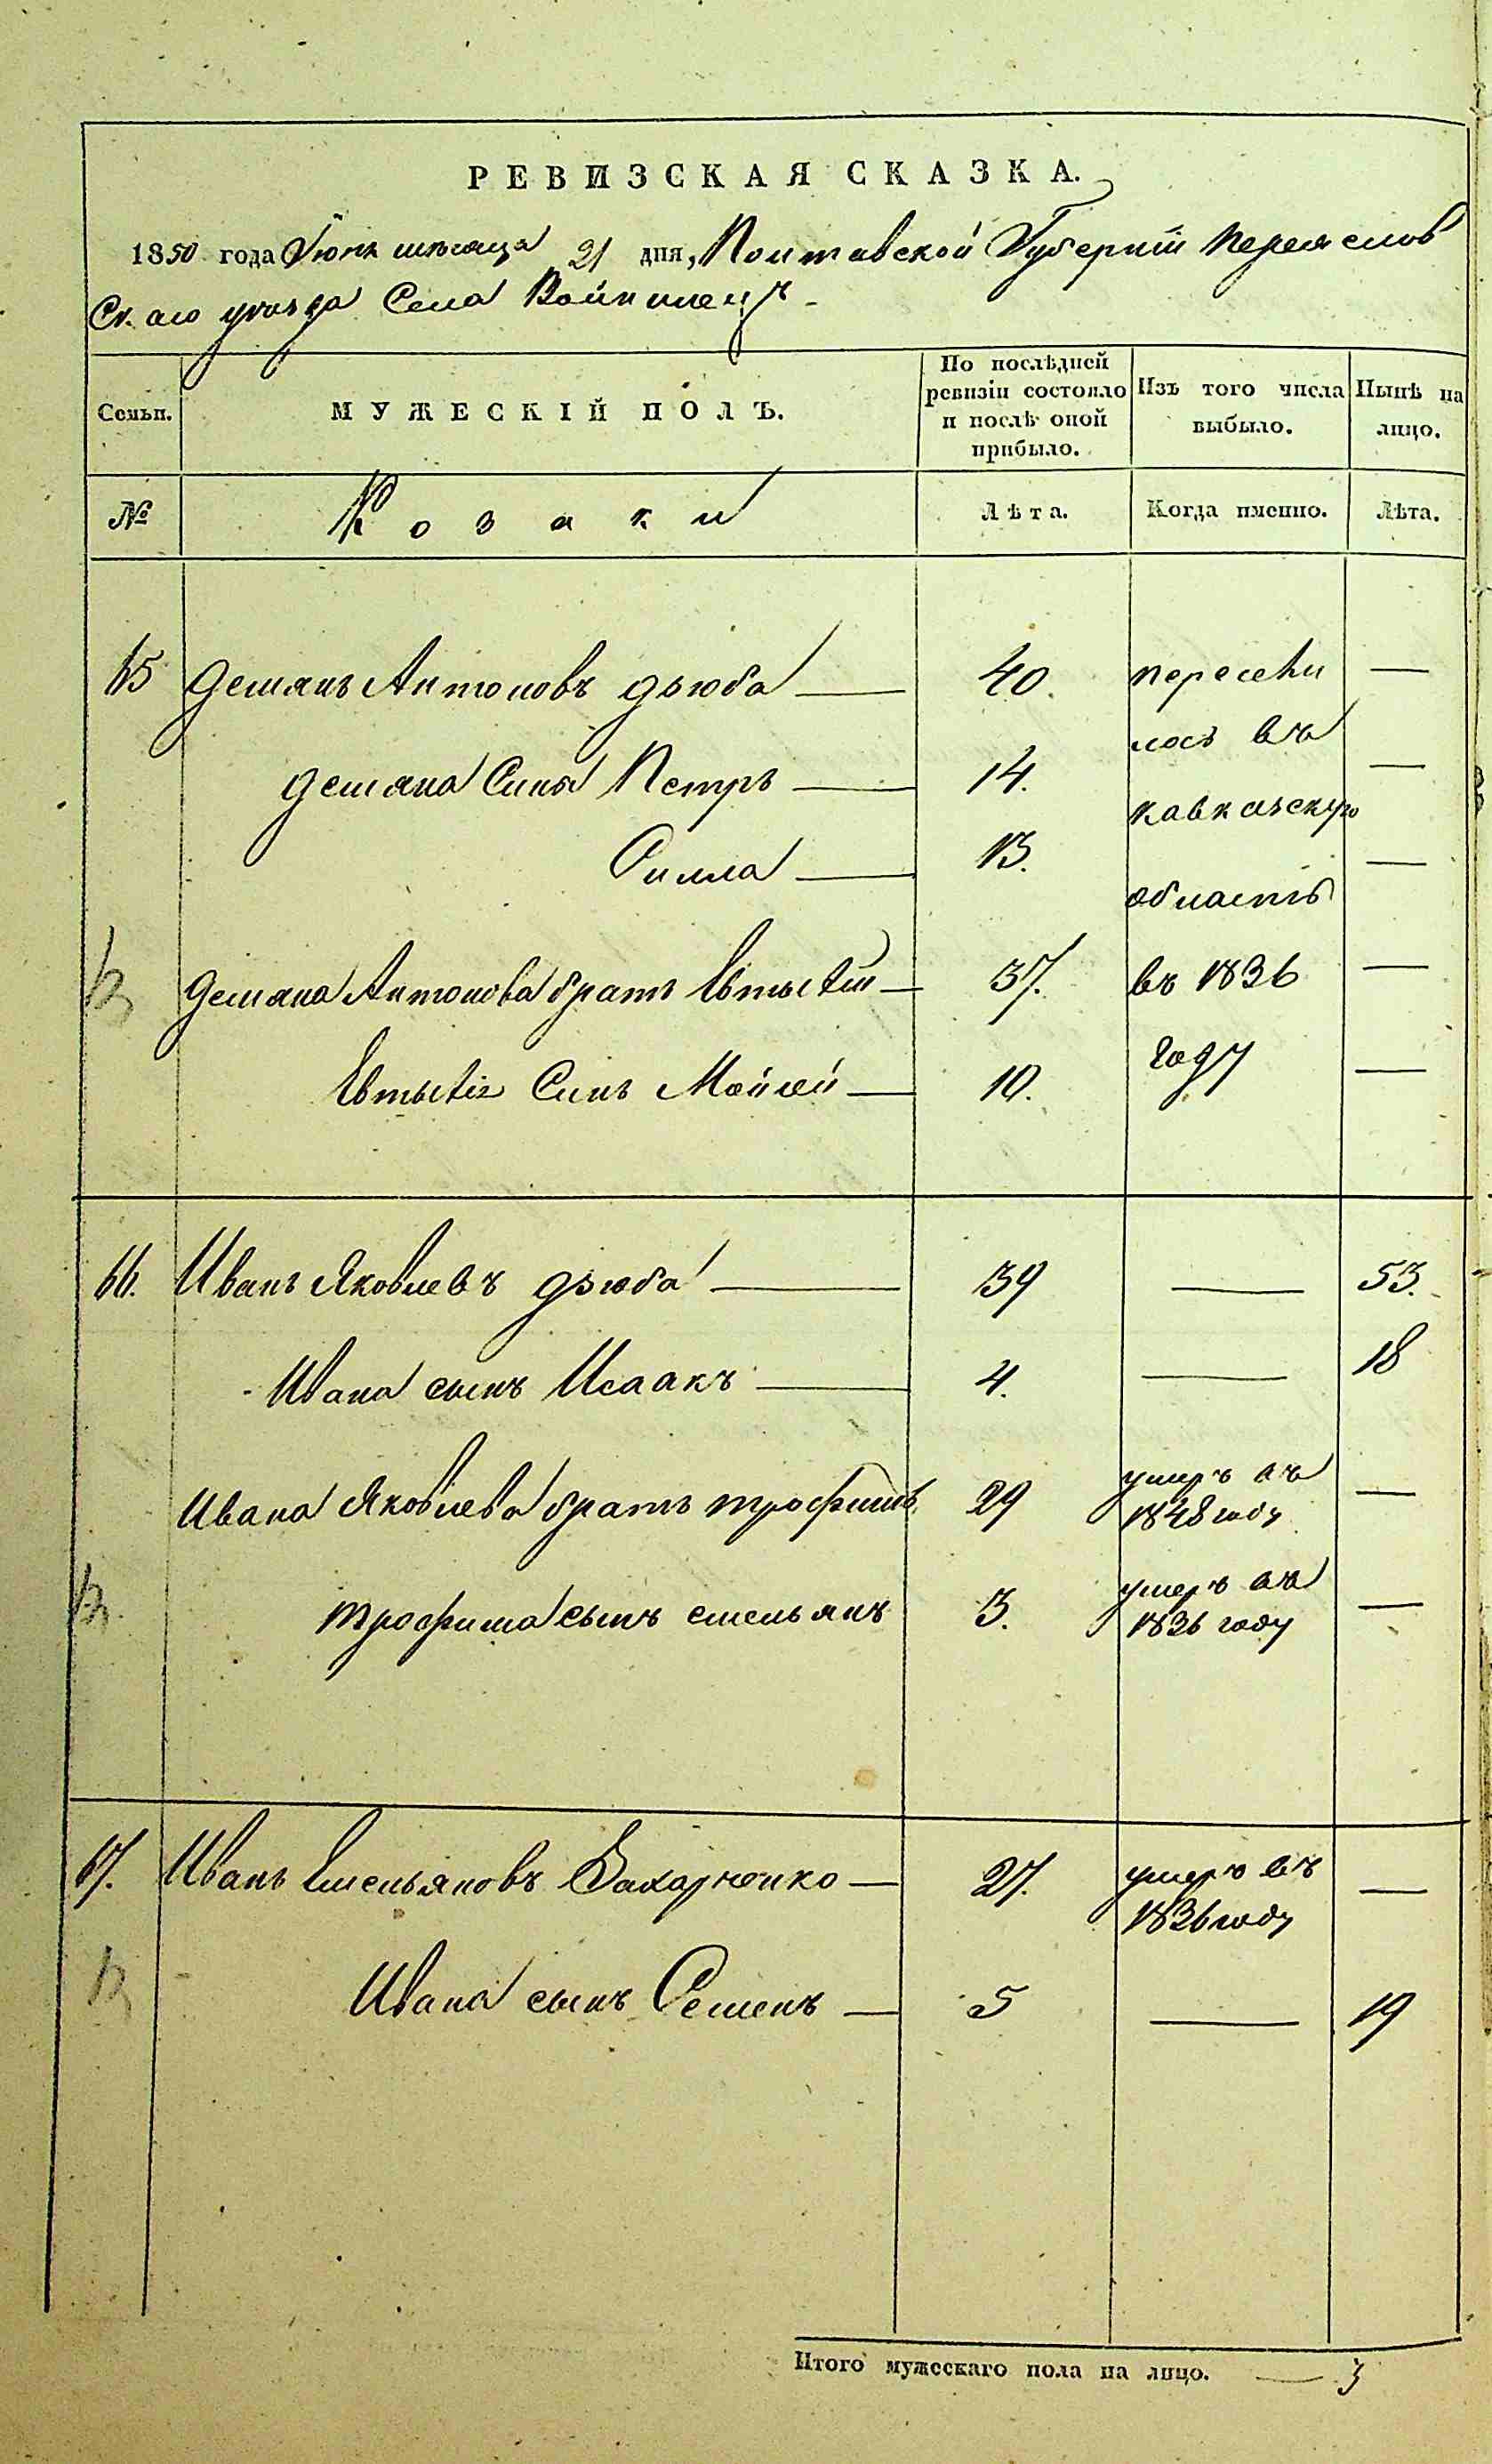 РЕВИЗСКАЯ СКАЗКА.
1850 года Июнь месяца 21 дня, Полтавской Губерніи Переяслов
Скаго уезда Села Войнинецъ
Семьи.
МУЖЕСКІЙ ПОЛЪ.
По послѣдней ревизіи состояло и послѣ оной прибыло.
Изъ того числа выбыло.
Нынѣ на лицо.
№
Козаки
Лѣта.
Когда именно.
Лѣта.
65 Демянъ Антоновъ дзюба — 40. пересели —
лось въ
Демяна Сины Петръ — 14. —
кавказскую
13. —
область
Демяна Антонова братъ Евтыхій — 37. въ 1836 —
Евтыхія Синъ Мойсей — 10. году —
66. Иванъ Яковлевъ дзюба — 39 — 53.
Ивана сынъ Исаакъ — 4. — 18
Ивана Яковлева братъ трофимъ 29 умеръ въ 1848 году —
трофима сынъ емельянъ 3. умеръ въ 1836 году —
67. Иванъ Емельяновъ Захарченко — 27. умеръ въ 1836 году —
Ивана сынъ Семенъ — 5 — 19
Итого мужескаго пола на лицо. — 3